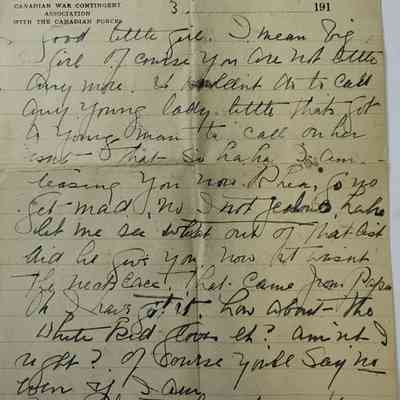 CANADIAN WAR CONTINGENT
ASSOCIATION
WITH THE CANADIAN FORCES
3
191
good little girl. I mean big
girl of course you are not little
any more. it wouldnt do to call
any young lady little thats got
a young man to call on her
isnt that so ha ha I am
teasing you now. Rhea, go no
get mad, no I not jealous, haha
let me see what out of that list
did he give you now it wasnt
the neck lace, that came from Papa
Oh I have got it. how about the
white kid gloves eh? aint I
right? Of course youll say no
even if I am